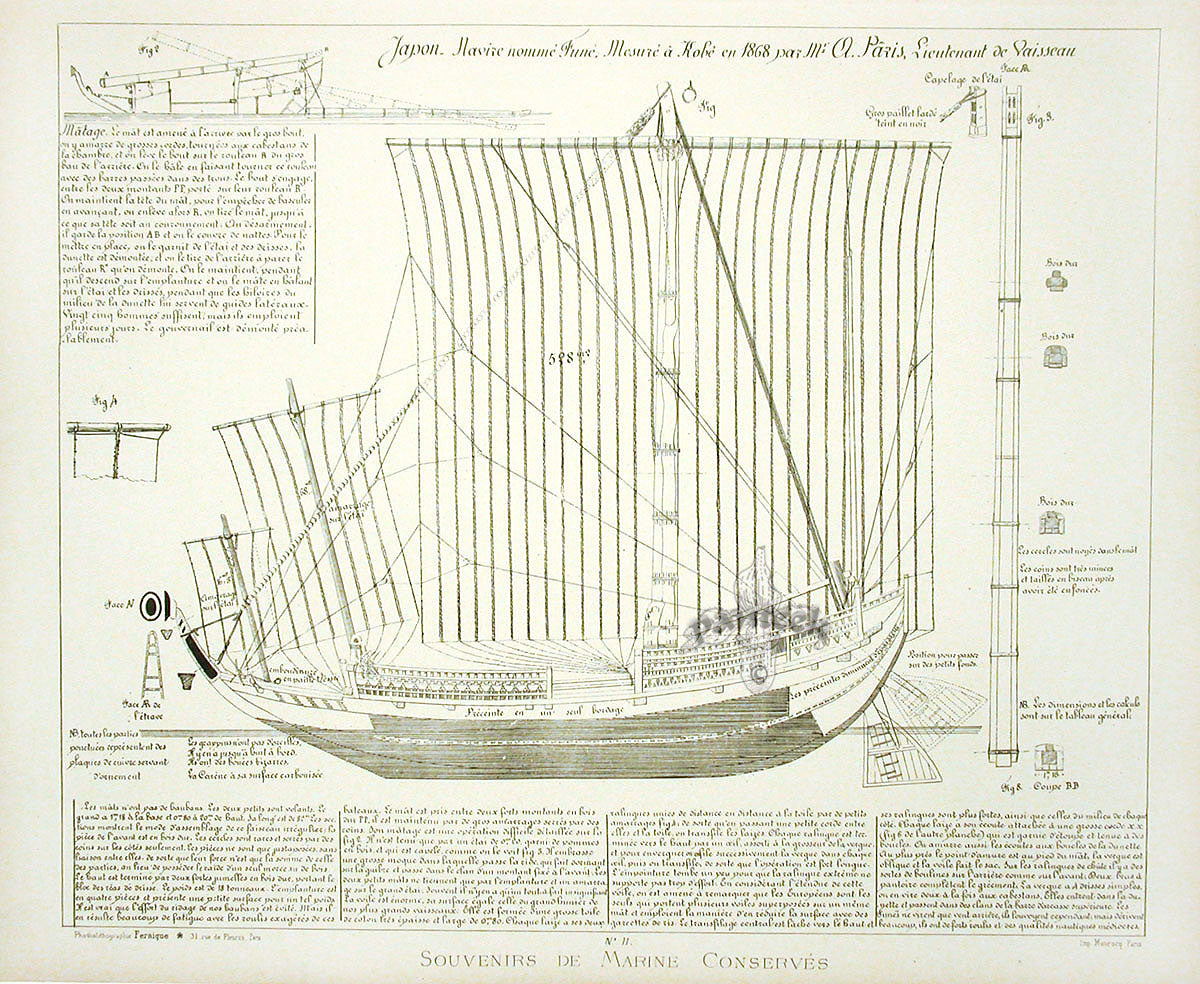 Japon. Navire nommé Funé. Mesuré à Kobé en 1868 par Mr. A. Pâris, Lieutenant de Vaisseau
Fig 2
Mâtage. Le mât est amené à l'arrière par le gros bout,
on y amarre de grosses cordes, tournées aux cabestans de
la chambre, et on lève le bout sur le rouleau A du gros
bau de l'arrière. On le hâle en faisant tourner ce rouleau
avec des barres passées dans des trous. Le bout s'engage,
entre les deux montants PP, porté sur leur rouleau B.
On maintient la tête du mât, pour l'empêcher de basculer
en avançant, on enlève alors R, on tire le mât, jusqu'à
ce que sa tête soit au couronnement. Au désarmement,
il garde la position AB et on le couvre de nattes. Pour le
mettre en place, on le garnit de l'étai et des drisses, la
dunette est démontée, et on le tire de l'arrière à parer le
rouleau R' qu'on démonte. On le maintient, pendant
qu'il descend sur l'emplanture et on le mâte en hâlant
sur l'étai et les drisses, pendant que les hiloires du
milieu de la dunette lui servent de guides latéraux.
Vingt cinq hommes suffisent, mais ils emploient
plusieurs jours. Le gouvernail est démonté préa-
lablement.
Fig
Capelage de l'étai
Face AR
Gros paillet lardé
teint en noir
Fig. 3.
Bois dur
Bois dur
Bois dur
Les cercles sont noyés dans le mât
Les coins sont très minces
et taillés en biseau après
avoir été enfoncés.
528
Fig 4
amarrage
sur l'étai
sur l'étai
Face
embouдinure
en paille tressée
Face AR de
l'étrave
NB. toutes les parties
ponctuées représentent des
plaques de cuivre servant
d'ornement
Les grappins n'ont pas d'oreilles,
il y en a jusqu'à huit à bord.
Ils ont des bouées bizarres.
La Carène a sa surface carbonisée
Préceinte en un seul bordage
Les préceintes diminuent d'épaisseur
Position pour passer
sur des petits fonds.
NB. Les dimensions et les calculs
sont sur le tableau général.
Fig 8. Coupe BB
1,18
Les mâts n'ont pas de haubans. Les deux petits sont volants. Le
grand a 1m,18 à la base et 0m,80 à 20m de haut. Les sec-
tions montrent le mode d'assemblage de ce faisceau irrégulier; la
pièce de l'avant est en bois dur. Les cercles sont carrés et serrés par des
coins sur les côtés seulement. Les pièces ne sont que juxtaposées, sans
liaison entre elles, de sorte que leur force n'est que la somme de celle
des parties, au lieu de posséder le raide d'un seul morceau de bois.
Le haut est terminé par deux fortes jumelles en bois dur, portant le
bloc des réas de drisse. Le poids est de 18 tonneaux. L'emplanture est
en quatre pièces et présente une petite surface pour un tel poids
Il est vrai que l'effort du ridage de nos haubans est évité. Mais il
en résulte beaucoup de fatigue avec les roulis exagérés de ces
bateaux. Le mât est pris entre deux forts montants en bois
dur PP, il est maintenu par de gros amarrages serrés par des
coins. Son mâtage est une opération difficile détaillée sur la
fig 2. Il n'est tenu que par un étai de 0m,20, garni de pommes
en bois, et qui est cravaté, comme on le voit fig 1. Il embrasse
une grosse moque dans laquelle passe la ride, qui fait dormant
sur la guibre et passe dans le clan d'un montant fixé à l'avant. Les
deux petits mâts ne tiennent que par l'emplanture et un amarra
ge sur le grand étai. Souvent il n'y en a qu'un tout à fait insignifiant
La voile est énorme, sa surface égale celle du grand hunier de
nos plus grands vaisseaux. Elle est formée d'une grosse toile
de coton très épaisse et large de 0m,80. Chaque laize a ses deux
ralingues unies de distance en distance à la toile par de petits
amarrages fig 4; de sorte qu'en passant une petite corde entre
elles et la toile, on transfile les laizes. Chaque ralingue est ter-
minée vers le haut par un œil, assorti à la grosseur de la vergue
et pour enverguer on file successivement la vergue dans chaque
œil, puis on transfile, de sorte que l'opération est fort longue.
L'empointure tombe un peu pour que la ralingue extrême ne
supporte pas trop d'effort. En considérant l'étendue de cette
voile, on est amené à remarquer que les Européens sont les
seuls qui portent plusieurs voiles superposées sur un même
mât et emploient la manière d'en réduire la surface avec des
garcettes de ris. Le transfilage central est lâché vers le haut et
ses ralingues sont plus fortes, ainsi que celles du milieu de chaque
côté. Chaque laize a son écoute attachée à une grosse corde x x
(fig 6 de l'autre planche) qui est garnie d'étoupe et tenue à des
boucles. On amarre aussi les écoutes aux boucles de la dunette.
Au plus près le point d'amure est au pied du mât, la vergue est
oblique et la voile fait le sac. Sur les ralingues de chûte il y a des
sortes de boulines sur l'arrière comme sur l'avant. Deux bras à
pantoire complètent le gréement. La vergue a 4 drisses simples,
on en vire deux à la fois aux cabestans. Elles entrent dans la du-
nette et passent dans des clans de la barre d'arcasse supérieure. Les
Funé ne virent que vent arrière, ils louvoyent cependant, mais dérivent
beaucoup, ils ont de forts roulis et des qualités nautiques médiocres.
Photholithographie Fernique ✻ 31, rue de Fleurus, Paris
N° 11.
Imp. Monrocq, Paris
SOUVENIRS DE MARINE CONSERVÉS
panteek
©